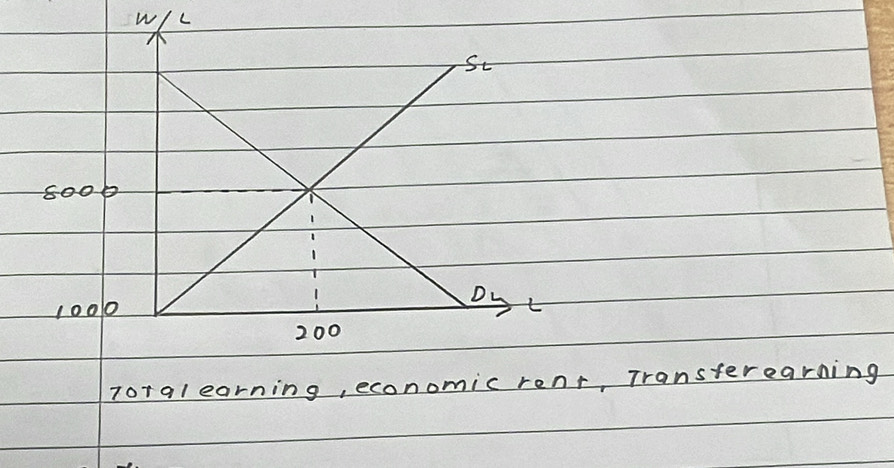 W/L
SL
8000
1000
DL
L
200
Total earning, economic rent, Transfer earning